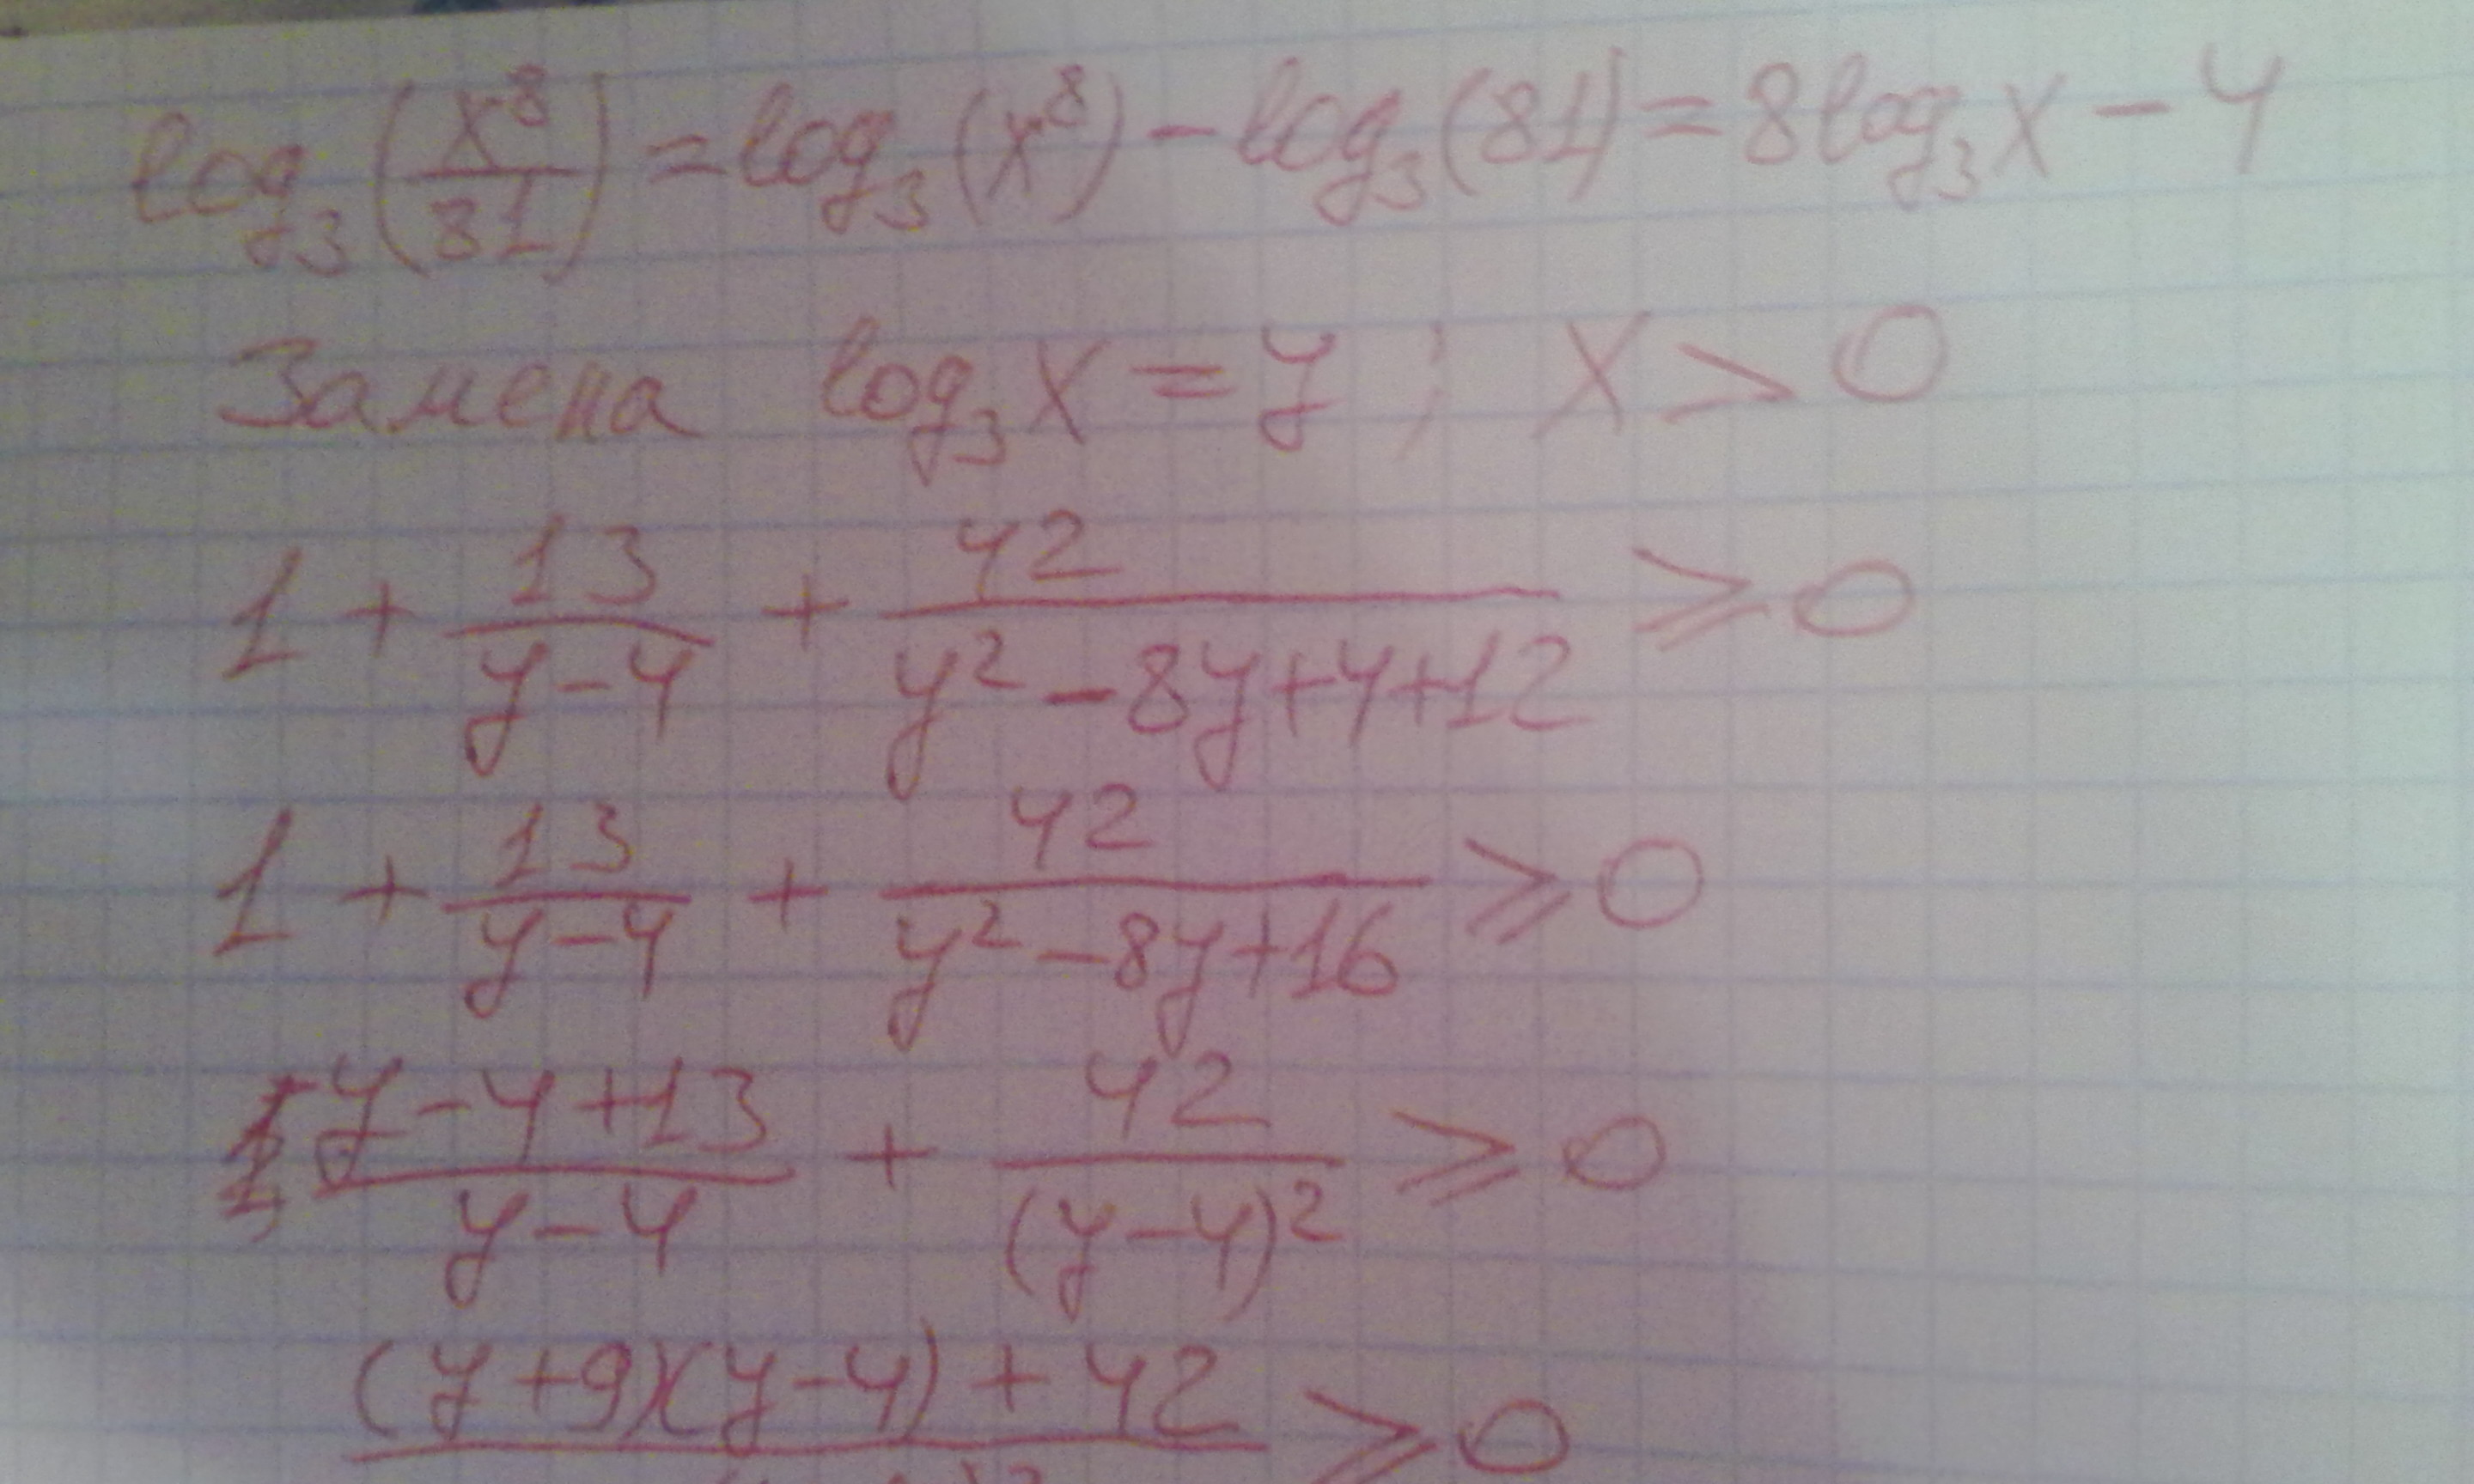 log₃(x⁸/81) = log₃(x⁸) - log₃(81) = 8log₃x - 4
Замена log₃x = y ; x > 0
1 + 13/(y-4) + 42/(y² - 8y + 4 + 12) ⩾ 0
1 + 13/(y-4) + 42/(y² - 8y + 16) ⩾ 0
(y - 4 + 13)/(y - 4) + 42/(y - 4)² ⩾ 0
((y + 9)(y - 4) + 42)/ ⩾ 0